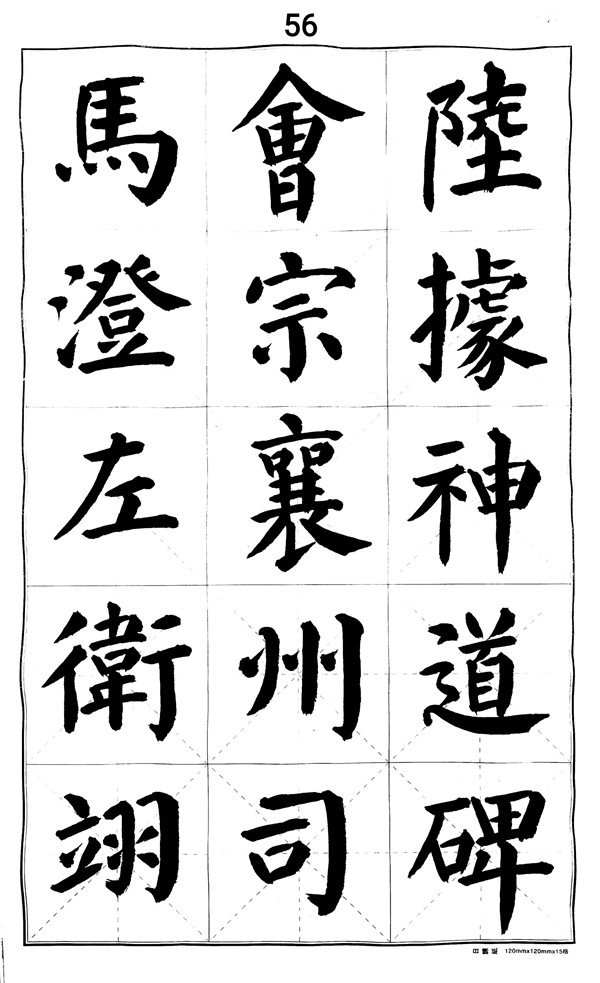 56
陸據神道碑
會宗襄州司
馬澄左衛翊
120mmx120mmx15格